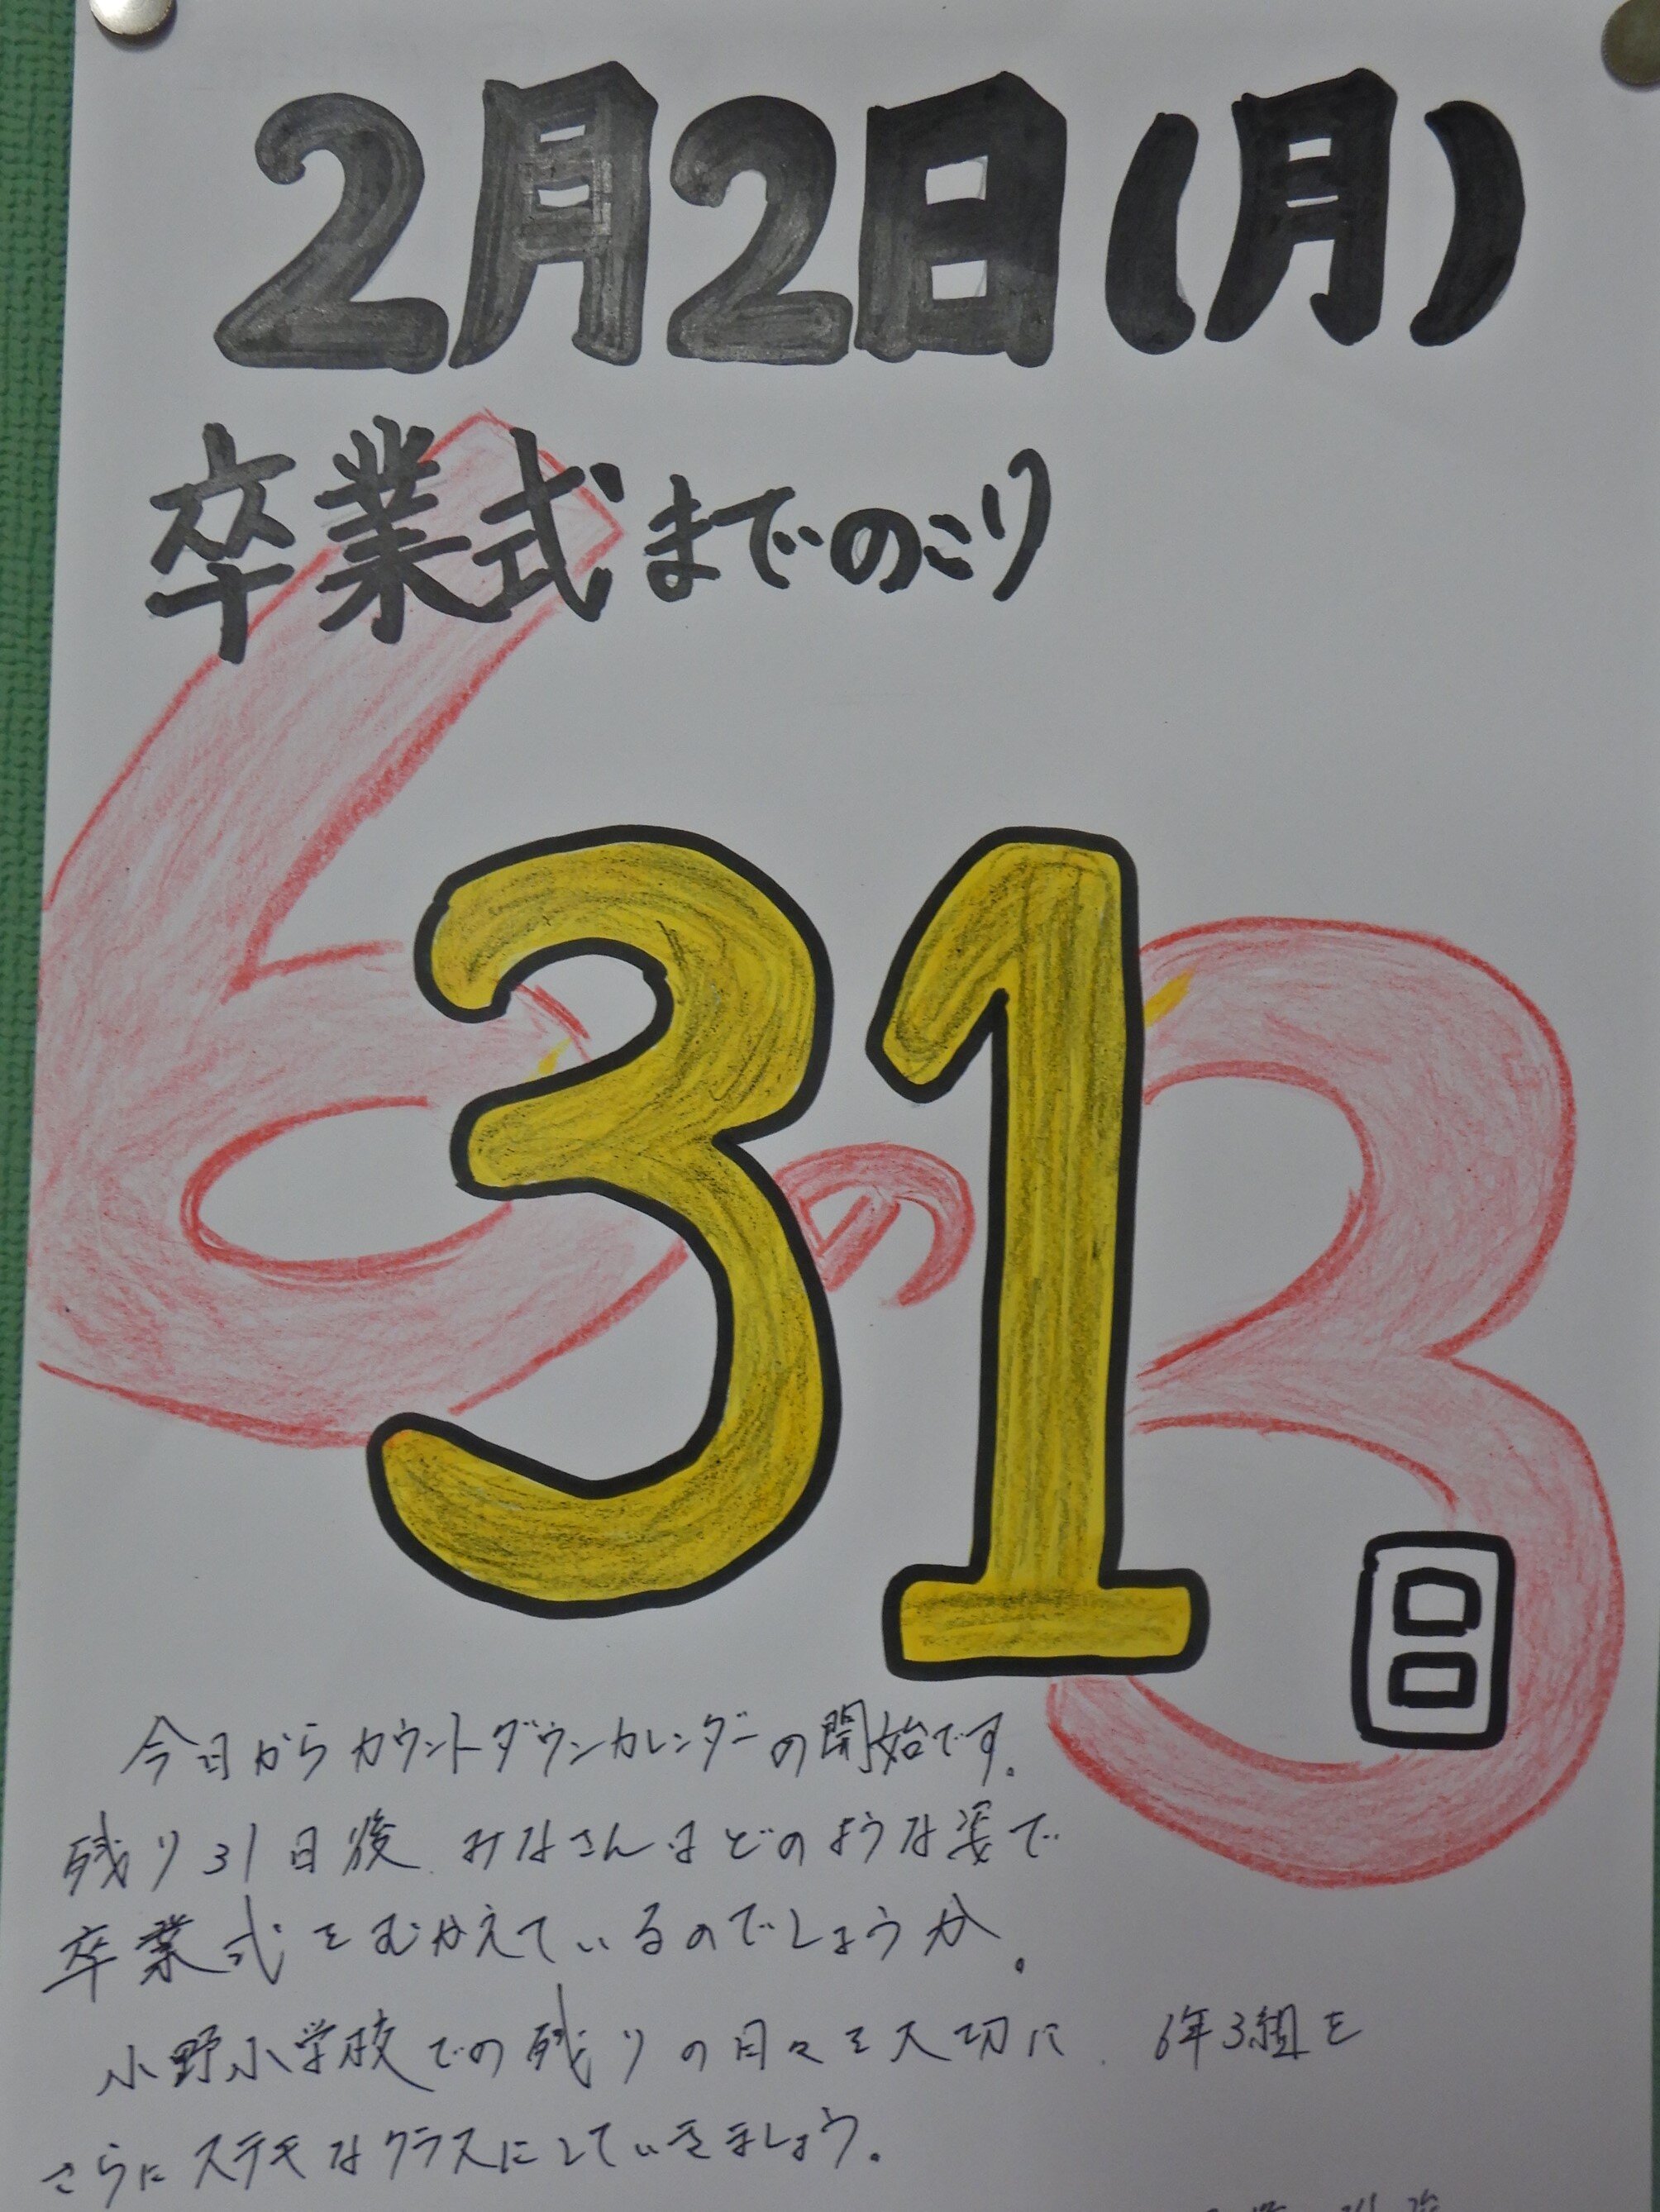 2月2日(月)
卒業式までのこり
6の3
31
日
今日からカウントダウンカレンダーの開始です。
残り31日後、みなさんはどのような姿で
卒業式をむかえているのでしょうか。
小野小学校での残りの日々を大切に、6年3組を
さらにステキなクラスにしていきましょう。